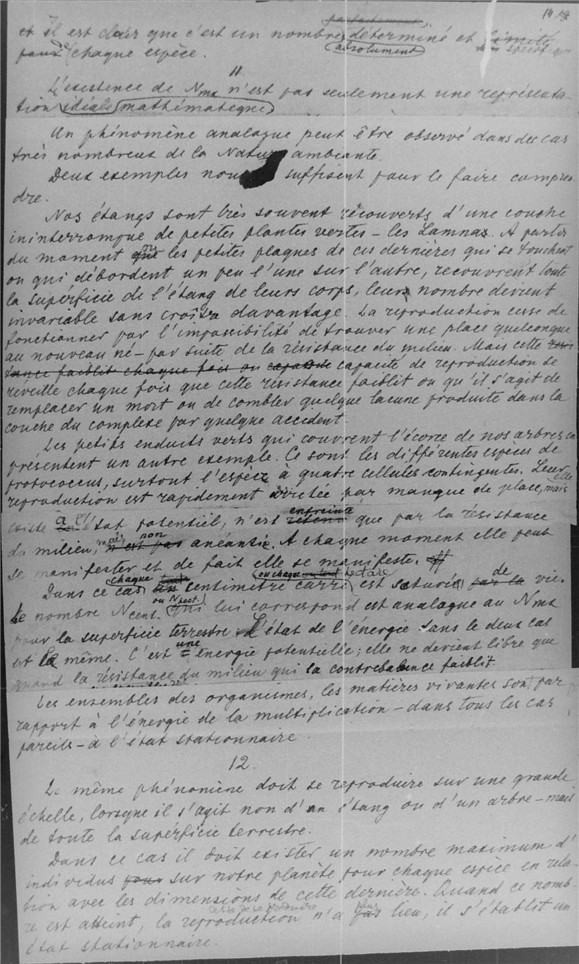 14
et il est clair que c'est un nombre déterminé et
absolument
pour chaque espèce.
11
L'existence de Nmx n'est pas seulement une représenta-
tion idéale mathématique
Un phénomène analogue peut être observé dans des cas
très nombreux de la Nature ambeante.
Deux exemples nous suffisent pour le faire compren
dre.
Nos étangs sont très souvent recouverts d'une couche
ininterromque de petites plantes vertes – les Lamnas. A partir
du moment ou les petites plaques de ces dernières qui se touchent
ou qui débordent un peu l'une sur l'autre, recouvrent toute
la superficie de l'étang de leurs corps, leur nombre devient
invariable sans croître davantage. La reproduction cesse de
fonctionner par l'impossibilité de trouver une place quelconque
au nouveau né – par suite de la résistance du milieu. Mais cette résis
tance faiblit chaque fois ou capacité de reproduction se
réveille chaque fois que cette résistance faiblit ou qu'il s'agit de
remplacer un mort ou de combler quelque lacune produite dans la
couche du complexe par quelque accident.
Les petits enduits verts qui couvrent l'écorce de nos arbres en
présentent un autre exemple. Ce sont les différentes espèces de
protococcus, surtout l'espèce à quatre cellules contingentes. Leur
reproduction est rapidement arrêtée par manque de place, mais elle
existe à l'état potentiel, n'est enfreint que par la résistance
du milieu, non anéantie. A chaque moment elle peut
se manifester et de fait elle se manifeste.
Dans ce cas chaque centimètre carré ou chaque hectare est saturé de vie.
Le nombre Ncent. ou Nhect. qui lui correspond est analogue au Nmx
pour la superficie terrestre. L'état de l'énergie dans le deux cas
est le même. C'est une énergie potentielle; elle ne devient libre que
quand la résistance du milieu qui la contrebalence faiblit
Les ensembles des organismes, les matières vivantes sont par
rapport à l'énergie de la multiplication – dans tous les cas
pareils – à l'état stationnaire.
12.
Le même phénomène doit se reproduire sur une grande
échelle, lorsque il s'agit non d'un étang ou d'un arbre – mais
de toute la superficie terrestre.
Dans ce cas il doit exister un nombre maximum d'
individus pour sur notre planète pour chaque espèce en rela-
tion avec les dimensions de cette dernière. Quand ce nomb-
re est atteint, la reproduction n'a plus lieu, il s'établit un
état stationnaire.